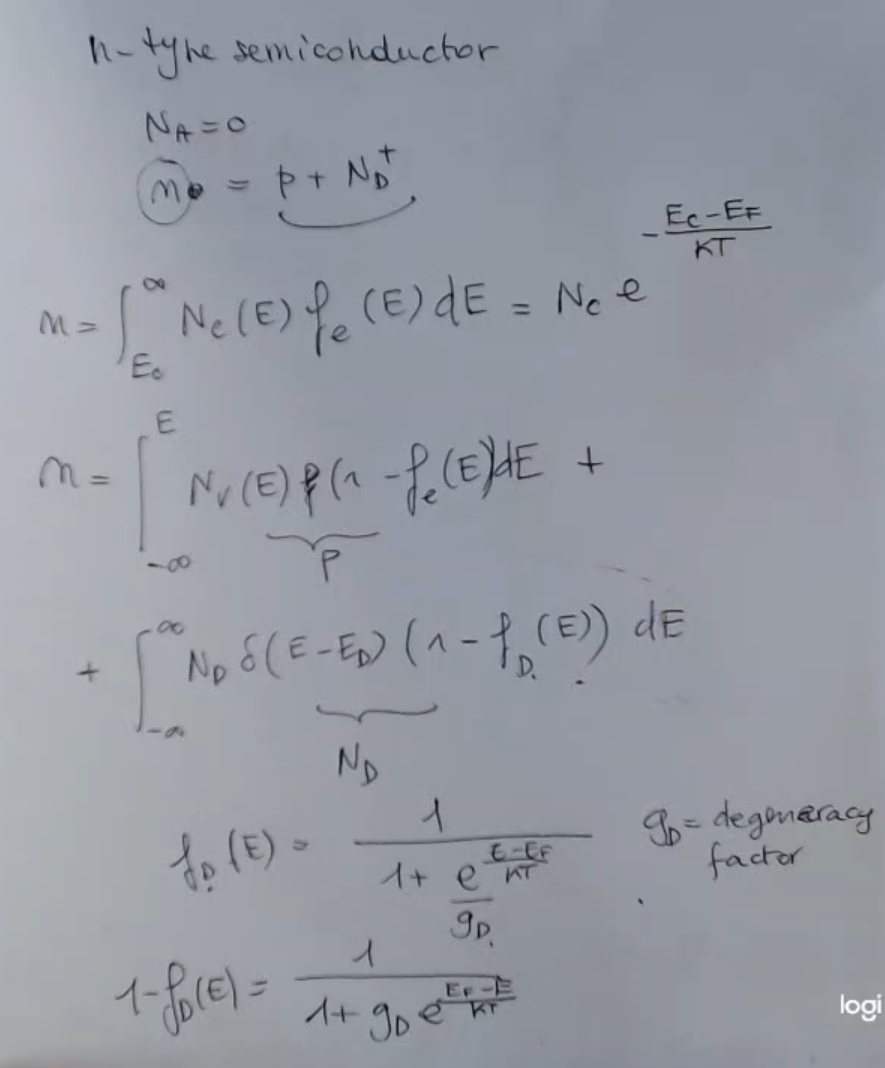 n-type semiconductor
N_A = 0
n = p + N_D^+
n = ∫_{E_c}^{∞} N_c(E) f_e(E) dE = N_c e^{-\frac{E_C-E_F}{KT}}
n = ∫_{-∞}^{E} N_v(E) (1 - f_e(E)) dE +
P
+ ∫_{-∞}^{∞} N_D δ(E-E_D) (1 - f_D(E)) dE
N_D
f_D(E) = \frac{1}{1 + \frac{e^{\frac{E-E_F}{KT}}}{g_D}} g_D = degeneracy
factor
1-f_D(E) = \frac{1}{1 + g_D e^{\frac{E_F-E}{KT}}}
logi